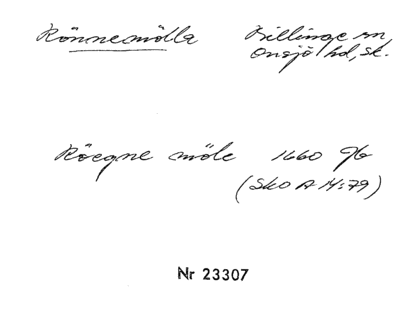 Rönnemölla
Billinge sn,
Onsjö hd, Sk.
Röegne möle 1660 Jb
(Sko A 14:79)
Nr 23307